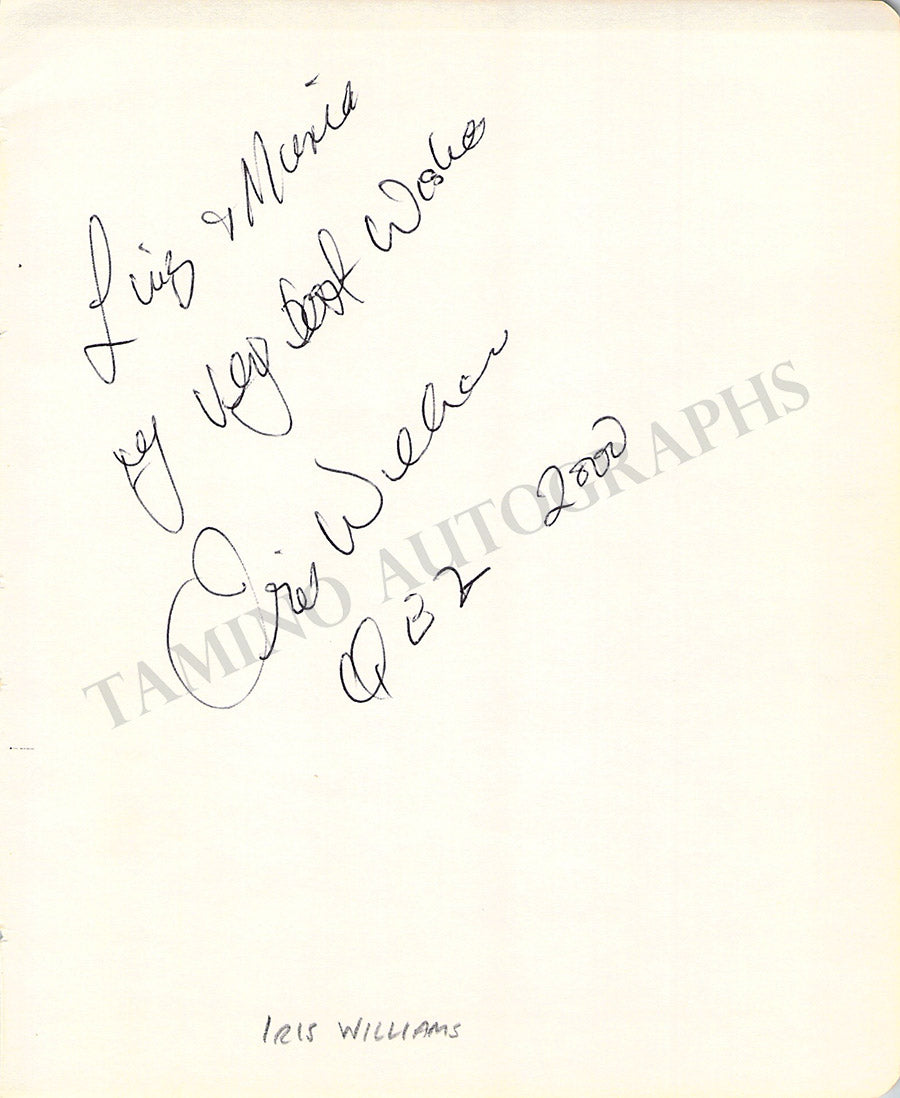 Luis & Maria
my very best Wishes
Iris Williams
QE2 2000
TAMINO AUTOGRAPHS
IRIS WILLIAMS